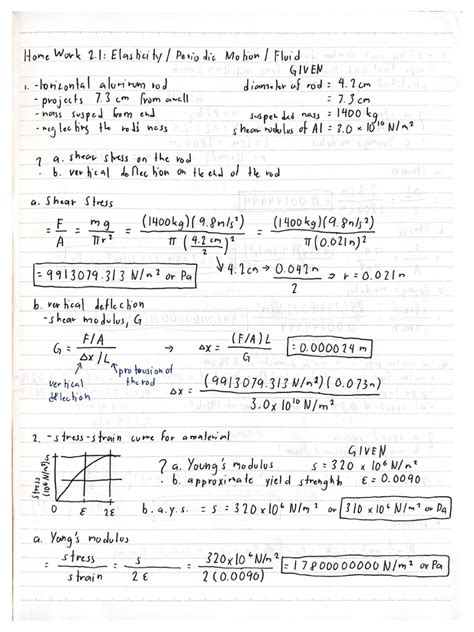 Home Work 2.1: Elasticity / Periodic Motion / Fluid
GIVEN
1. -horizontal aluminum rod diameter of rod = 4.2 cm
- projects 7.3 cm from a wall = 7.3 cm
- mass suspend from end suspended mass = 1400 kg
- neglecting the rod's mass shear modulus of Al = 3.0 x 10¹⁰ N/m²
? a. shear stress on the rod
. b. vertical deflection on the end of the rod
a. Shear Stress
= F/A = mg/πr² = (1400kg)(9.8m/s²)/π(4.2cm/2)² = (1400kg)(9.8m/s²)/π(0.021m)²
= 9913079.313 N/m² or Pa 4.2cm → 0.042m/2 → r = 0.021m
b. vertical deflection
- shear modulus, G
G = F/A / Δx/L → Δx = (F/A)L/G = 0.000024 m
vertical deflection protrusion of the rod
Δx = (9913079.313 N/m²)(0.073m)/3.0x10¹⁰ N/m²
2. -stress-strain curve for a material
GIVEN
? a. Young's modulus s = 320 x 10⁶ N/m²
. b. approximate yield strenght ε = 0.0090
Stress (10⁶ N/m²)
s
0 ε 2ε
b. a.y.s. = s = 320 x 10⁶ N/m² or 310 x 10⁶ N/m² or Pa
a. Yong's modulus
= stress/strain = s/2ε = 320x10⁶ N/m²/2(0.0090) = 17800000000 N/m² or Pa